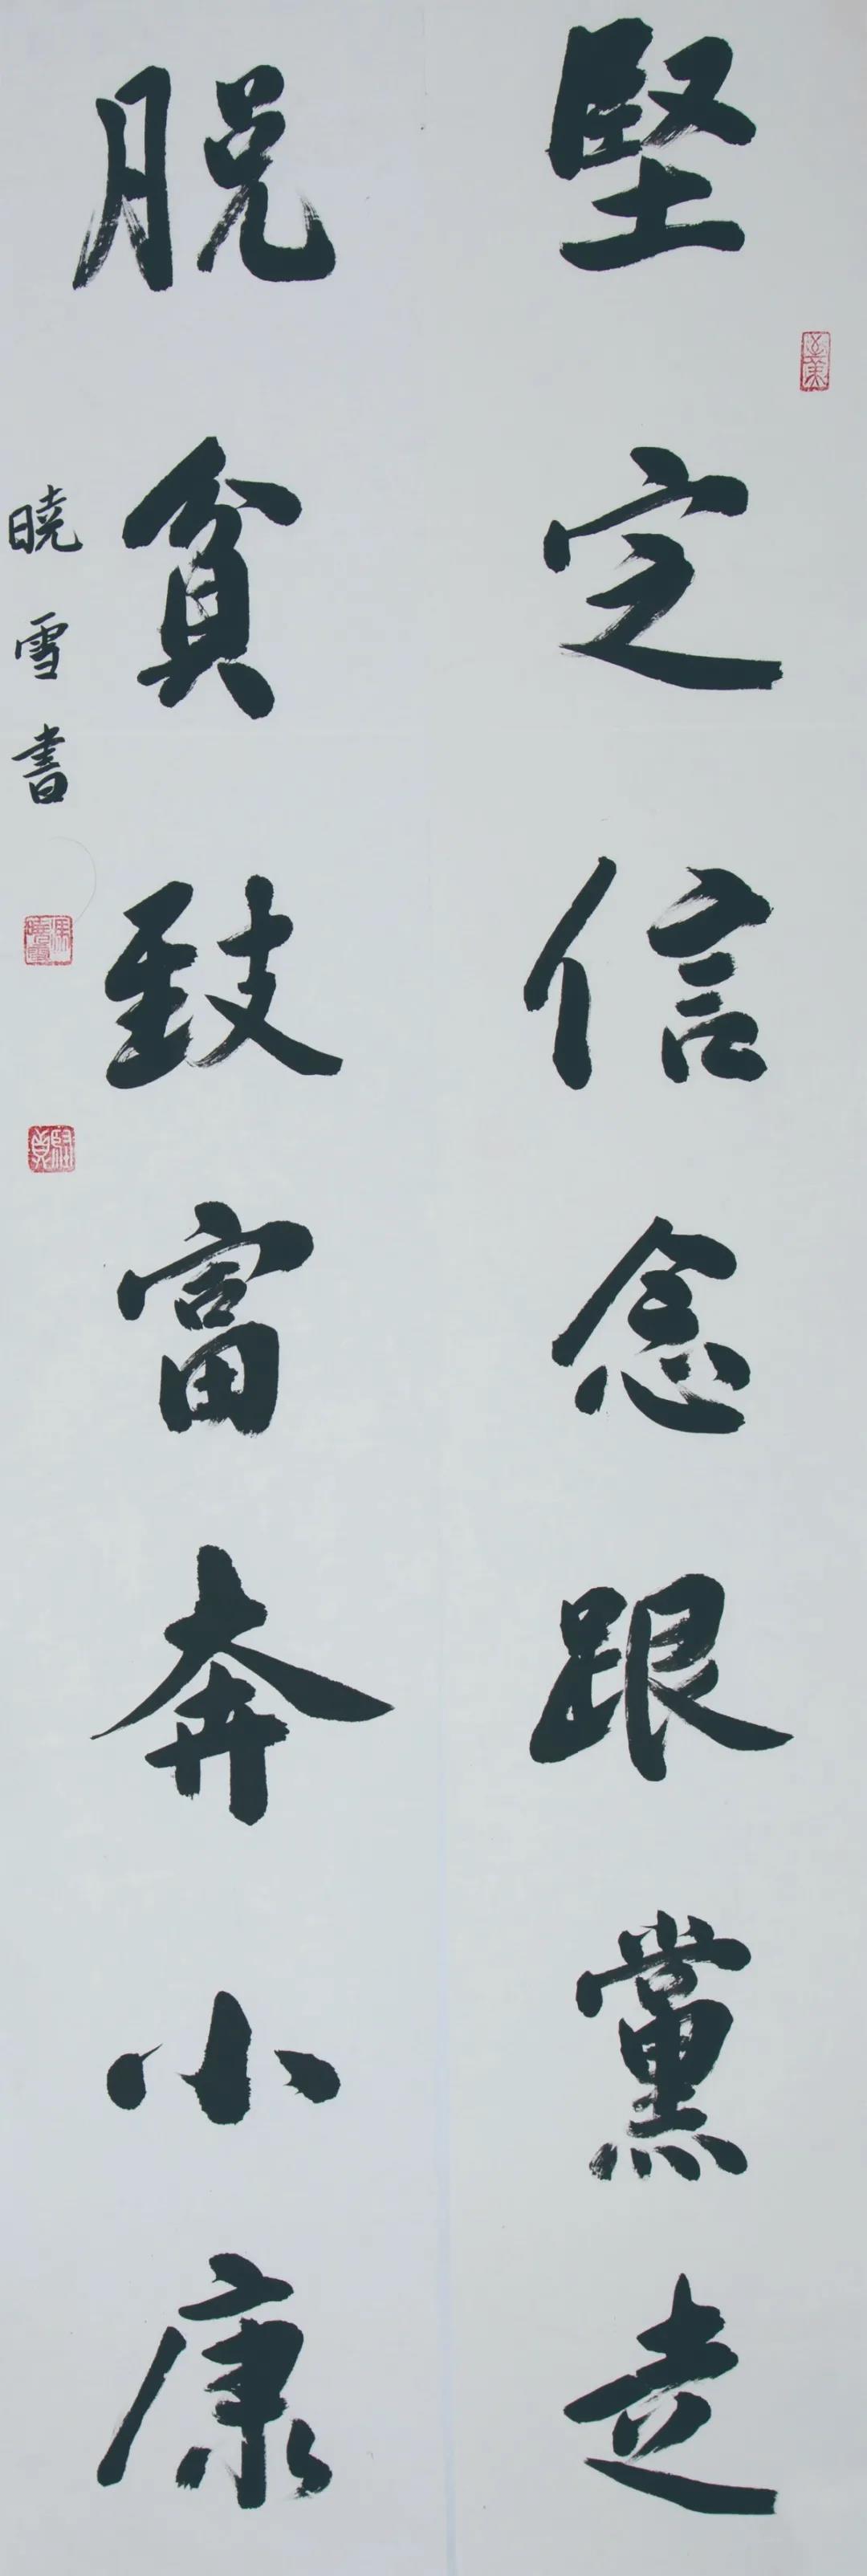 堅定信念跟黨走
脫貧致富奔小康
曉雪書